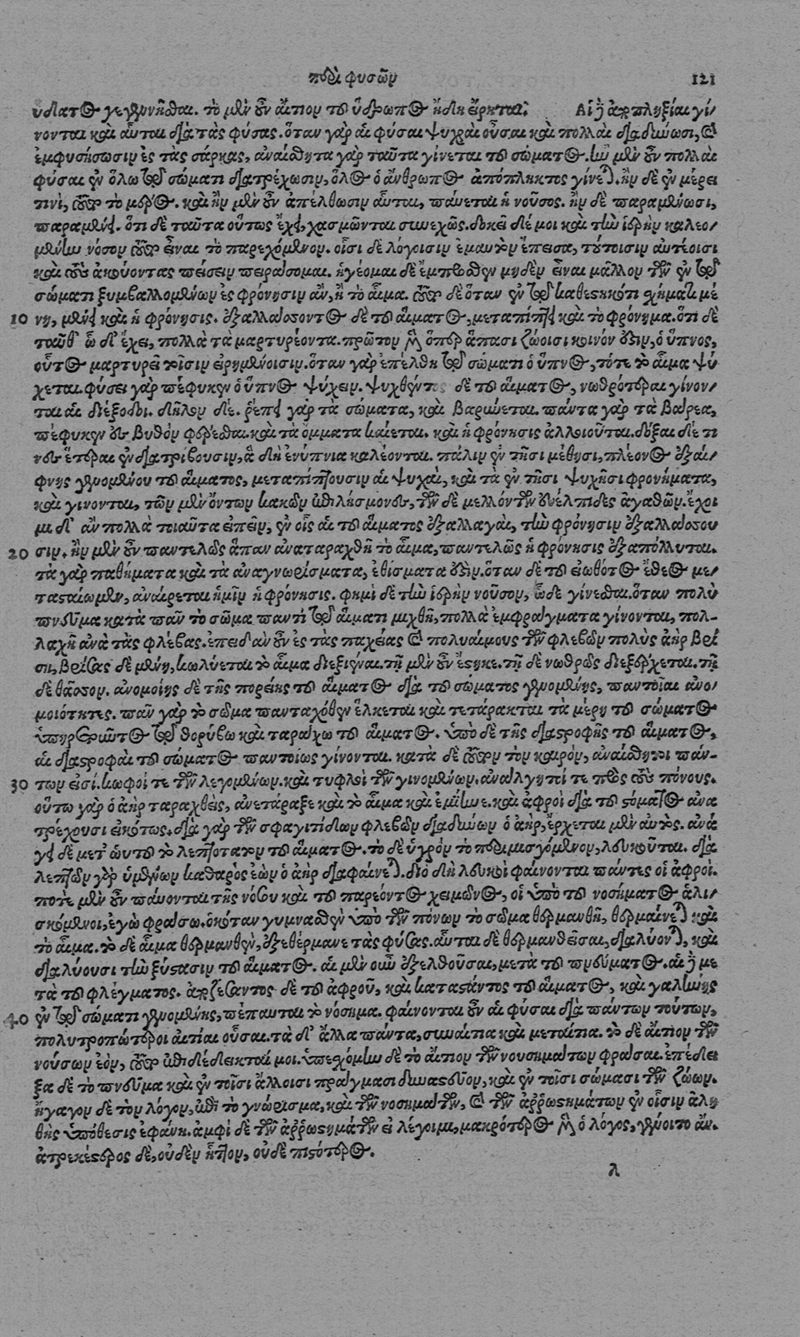 περὶ φυσῶν 121
ὕδατος γεγενῆσθαι. τὸ μὲν οὖν αἴτιον τοῦ ὕδρωπος ἤδη εἴρηται. Αἱ δὲ ἀποπληξίαι γί-
νονται καὶ αὗται διὰ τὰς φύσας. ὅταν γὰρ αἱ φύσαι ψυχραὶ οὖσαι καὶ πολλαὶ διαδύνωσι, καὶ
ἐμφυσήσωσιν ἐς τὰς σάρκας, ἀναίσθητα γὰρ ταῦτα γίνεται τοῦ σώματος. ἢν μὲν οὖν πολλαὶ
φύσαι ἐν ὅλῳ τῷ σώματι διατρέχωσιν, ὅλος ὁ ἄνθρωπος ἀπόπληκτος γίνεται. ἢν δὲ ἐν μέρει
τινὶ, τοῦτο τὸ μέρος. καὶ ἢν μὲν οὖν ἀπέλθωσιν αὗται, παύεται ἡ νοῦσος. ἢν δὲ παραμένωσι,
παραμένει. ὅτι δὲ ταῦτα οὕτως ἔχει, χασμῶνται συνεχῶς. δοκεῖ δέ μοι καὶ τὴν ἱερὴν καλεο-
μένην νόσον τοῦτο εἶναι τὸ παρεχόμενον. οἷσι δὲ λόγοισιν ἐμαυτὸν ἔπεισα, τούτοισιν αὐτέοισι
καὶ τοὺς ἀκούοντας πείσειν πειράσομαι. ἡγέομαι δὲ ἔμπροσθεν μηδὲν εἶναι μᾶλλον τῶν ἐν τῷ
σώματι ξυμβαλλομένων ἐς φρόνησιν ἂν, ἢ τὸ αἷμα. τοῦτο δὲ ὅταν ἐν τῷ καθεστηκότι σχήματι μέ-
10 νῃ, μένει καὶ ἡ φρόνησις. ἐξαλλάσοντος δὲ τοῦ αἵματος, μεταπίπτει καὶ τὸ φρόνημα. ὅτι δὲ
ταῦθ' ὧδ' ἔχει, πολλὰ τὰ μαρτυρέοντα. πρῶτον μὲν ὅπερ ἅπασι ζώοισι κοινόν ἐστιν, ὁ ὕπνος,
οὗτος μαρτυρεῖ τοῖσιν εἰρημένοισιν. ὅταν γὰρ ἐπέλθῃ τῷ σώματι ὁ ὕπνος, τότε τὸ αἷμα ψύ-
χεται. φύσει γὰρ πέφυκεν ὁ ὕπνος ψύχειν. ψυχθέντος δὲ τοῦ αἵματος, νωθρότεραι γίνον-
ται αἱ διέξοδοι. δῆλον δέ. ῥέπει γὰρ τὰ σώματα, καὶ βαρύνεται. πάντα γὰρ τὰ βαρέα,
πέφυκεν ἐς βυθὸν φέρεσθαι. καὶ τὰ ὄμματα κλείεται. καὶ ἡ φρόνησις ἀλλοιοῦται. δόξαι δέ τι-
νες ἕτεραι ἐνδιατρίβουσιν, ἃ δὴ ἐνύπνια καλέονται. πάλιν ἐν τῇσι μέθῃσι, πλέονος ἐξαί-
φνης γενομένου τοῦ αἵματος, μεταπίπτουσιν αἱ ψυχαὶ, καὶ τὰ ἐν τῇσι ψυχῇσι φρονήματα,
καὶ γίνονται, τῶν μὲν ὄντων κακῶν ἐπιλήσμονες, τῶν δὲ μελλόντων εὐέλπιδες ἀγαθῶν. ἔχοι-
μι δ' ἂν πολλὰ τοιαῦτα εἰπεῖν, ἐν οἷς αἱ τοῦ αἵματος ἐξαλλαγαὶ, τὴν φρόνησιν ἐξαλλάσσου-
20 σιν. ἢν μὲν οὖν παντελῶς ἅπαν ἀναταραχθῇ τὸ αἷμα, παντελῶς ἡ φρόνησις ἐξαπόλλυται.
τὰ γὰρ παθήματα καὶ τὰ ἀναγνωρίσματα, ἐθίσματά ἐστιν. ὅταν δὲ τοῦ εἰωθότος ἔθεος με-
ταστέωμεν, ἀναιρεῖται ἡμῖν ἡ φρόνησις. φημὶ δὲ τὴν ἱερὴν νοῦσον, ὧδε γίνεσθαι. ὅταν πολὺ
πνεῦμα κατὰ πᾶν τὸ σῶμα παντὶ τῷ αἵματι μιχθῇ, πολλὰ ἐμφράγματα γίνονται, πολ-
λαχῆ ἀνὰ τὰς φλέβας. ἐπειδὰν οὖν ἐς τὰς παχείας καὶ πολυαίμους τῶν φλεβῶν πολὺς ἀὴρ βρί-
σῃ, βρίσας δὲ μένῃ, κωλύεται τὸ αἷμα διεξιέναι. τῇ μὲν οὖν ἕστηκε. τῇ δὲ νωθρῶς διεξέρχεται. τῇ
δὲ θᾶσσον. ἀνομοίης δὲ τῆς πορείης τοῦ αἵματος διὰ τοῦ σώματος γενομένης, παντοῖαι ἀνο-
μοιότητες. πᾶν γὰρ τὸ σῶμα πανταχόθεν ἕλκεται καὶ τετάρακται τὰ μέρη τοῦ σώματος
ὑπηρετέοντα τῷ θορύβῳ καὶ ταράχῳ τοῦ αἵματος. ὑπὸ δὲ τῆς διαστροφῆς τοῦ αἵματος,
αἱ διαστροφαὶ τοῦ σώματος παντοίως γίνονται. κατὰ δὲ τοῦτον τὸν καιρὸν, ἀναίσθητοι πάν-
30 των εἰσί. κωφοί τε τῶν λεγομένων. καὶ τυφλοὶ τῶν γινομένων. ἀνάλγητοί τε πρὸς τοὺς πόνους.
οὕτω γὰρ ὁ ἀὴρ ταραχθεὶς, ἀνετάραξε καὶ τὸ αἷμα καὶ ἐμίηνε. καὶ ἀφροὶ διὰ τοῦ στόματος ἀνα
τρέχουσι εἰκότως. διὰ γὰρ τῶν σφαγιτίδων φλεβῶν διαδύνων ὁ ἀὴρ, ἔρχεται μὲν αὐτός. ἀνά-
γει δὲ μεθ' ἑωυτοῦ τὸ λεπτότατον τοῦ αἵματος. τὸ δὲ ὑγρὸν τὸ περιμισγόμενον, λευκοῦται. διὰ
λεπτῶν γὰρ ὑμένων καθαρὸς ἐὼν ὁ ἀὴρ διαφαίνεται. διὸ δὴ λευκοὶ φαίνονται πάντες οἱ ἀφροί.
ποτὲ μὲν οὖν παύονται τῆς νόσου καὶ τοῦ παρεόντος χειμῶνος, οἱ ὑπὸ τοῦ νοσήματος ἁλι-
σκόμενοι, ἐγὼ φράσω. ὁκόταν γυμνασθὲν ὑπὸ τῶν πόνων τὸ σῶμα θερμανθῇ, θερμαίνεται καὶ
τὸ αἷμα. τὸ δὲ αἷμα θερμανθὲν, ἐξεθέρμανε τὰς φύσας. αὗται δὲ θερμανθεῖσαι, διαλύονται, καὶ
διαλύουσι τὴν ξύστασιν τοῦ αἵματος. αἱ μὲν οὖν ἐξελθοῦσαι, μετὰ τοῦ πνεύματος. αἱ δὲ με
τὰ τοῦ φλέγματος. ἀποζέσαντος δὲ τοῦ ἀφροῦ, καὶ καταστάντος τοῦ αἵματος, καὶ γαλήνης
40 ἐν τῷ σώματι γενομένης, πέπαυται τὸ νόσημα. φαίνονται οὖν αἱ φύσαι διὰ πάντων τούτων,
πολυτροπώτεροι αἰτίαι οὖσαι. τὰ δ' ἄλλα πάντα, συναίτια καὶ μεταίτια. τὸ δὲ αἴτιον τῶν
νούσων ἐὸν, τοῦτο ἐπιδέδεικταί μοι. ὑπεσχόμην δὲ τὸ αἴτιον τῶν νουσημάτων φράσαι. ἐπέδει-
ξα δὲ τὸ πνεῦμα καὶ ἐν τοῖσι ἄλλοισι πράγμασι δυναστεῦον, καὶ ἐν τοῖσι σώμασι τῶν ζώων.
ἤγαγον δὲ τὸν λόγον, ἐπὶ τὸ γνώρισμα, καὶ τῶν νοσημάτων, καὶ τῶν ἀῤῥωστημάτων ἐν οἷσιν ἀλη-
θὴς ὑπόθεσις ἐφάνη. ἀμφὶ δὲ τῶν ἀῤῥωστημάτων εἰ λέγοιμι, μακρότερος μὲν ὁ λόγος, γένοιτο ἄν.
ἀτρεκέστερος δὲ, οὐδὲν ἧττον, οὐδὲ πιστότερος.
λ